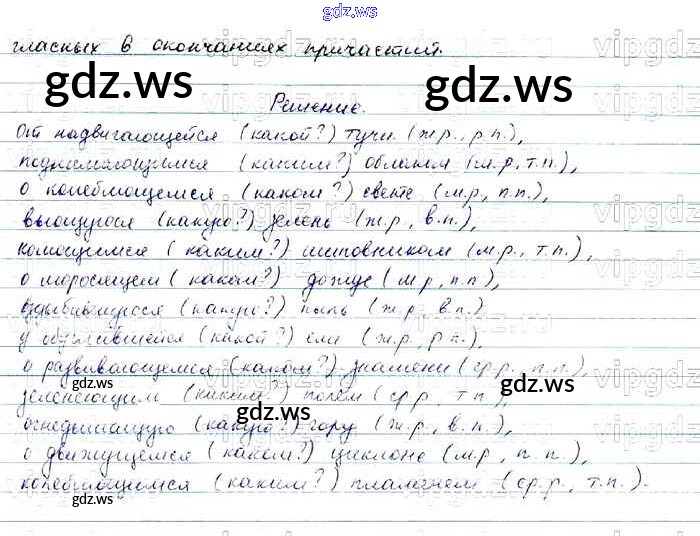 gdz.ws
гласных в окончаниях причастий.
gdz.ws gdz.ws
Решение.
От надвигающейся (какой?) тучи (ж.р., р.п.),
поднимающимся (каким?) облаком (с.р., т.п.),
о колеблющемся (каком?) свете (м.р., п.п.),
вьющуюся (какую?) зелень (ж.р., в.п.),
колющимся (каким?) шиповником (м.р., т.п.),
о моросящем (каком?) дожде (м.р., п.п.),
(какую?) пыль (ж.р., в.п.)
у (какой?) ели (ж.р., р.п.),
о развивающемся (каком?) знамени (ср.р., п.п.),
зеленеющим (каким?) полем (ср.р., т.п.),
gdz.ws gdz.ws gdz.ws
огнедышащую (какую?) гору (ж.р., в.п.),
о движущемся (каком?) циклоне (м.р., п.п.),
колеблющимся (каким?) пламенем (ср.р., т.п.).
gdz.ws gdz.ws